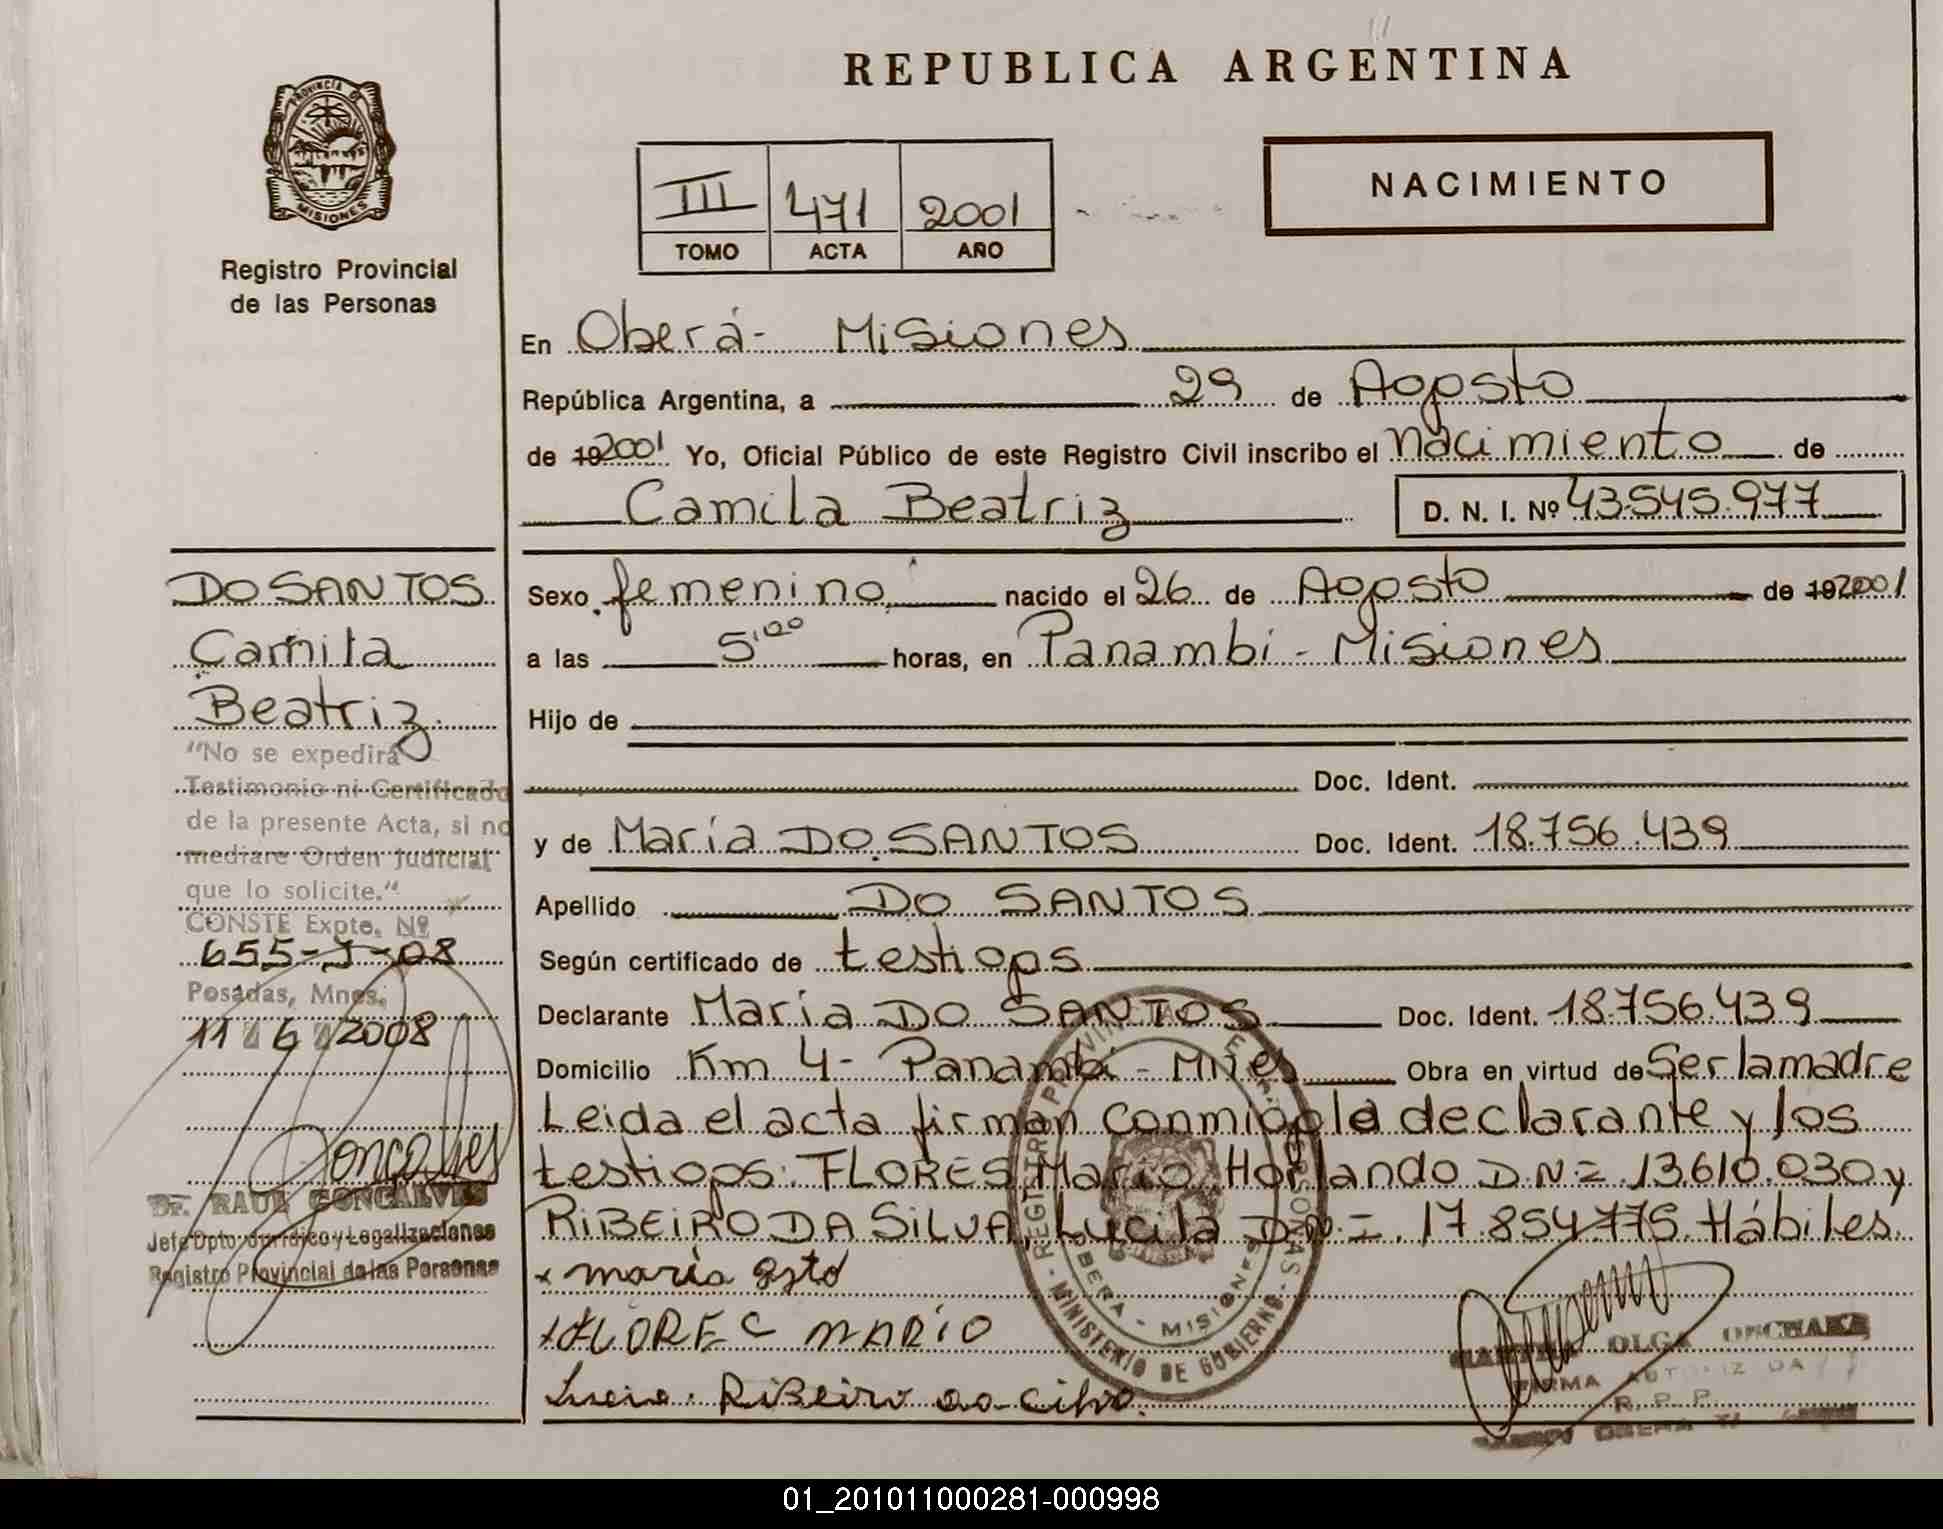 REPUBLICA ARGENTINA
PROVINCIA D
MISIONES
Registro Provincial
de las Personas
III 471 2001
TOMO ACTA AÑO
NACIMIENTO
En Oberá- Misiones
República Argentina, a 29 de Agosto
de 19 2001 Yo, Oficial Público de este Registro Civil inscribo el Nacimiento de
Camila Beatriz D. N. I. Nº 43.545.977
Sexo femenino nacido el 26 de Agosto de 19 2001
a las 5'00 horas, en Panambí - Misiones
Hijo de
Doc. Ident.
y de María DO SANTOS Doc. Ident. 18.756.439
Apellido DO SANTOS
Según certificado de testigos
Declarante María DO SANTOS Doc. Ident. 18.756.439
Domicilio Km 4- Panambí - Mnes Obra en virtud de Ser la madre
Leida el acta firman conmigo la declarante y los
testigos: FLORES, Mario Horlando D.N.I. 13.610.030 y
RIBEIRO DA SILVA, Lucila D.N.I. 17.854.775. Hábiles.
x maria
x FLOREC MARIO
RiBeiro
DO SANTOS
Camila
Beatriz
"No se expedirá
Testimonio ni Certificado
de la presente Acta, si no
mediare Orden Judicial
que lo solicite."
CONSTE Expte. Nº
655-J-08
Posadas, Mnes.
11 6 2008
Goncalves
Dr. RAUL GONCALVES
Jefe Dpto. Jurídico y Legalizaciones
Registro Provincial de las Personas
REGISTRO PROVINCIAL DE LAS PERSONAS
OBERA - MISIONES
MINISTERIO DE GOBIERNO
OLGA
FIRMA AUTORIZADA
R. P. P.
01_201011000281-000998